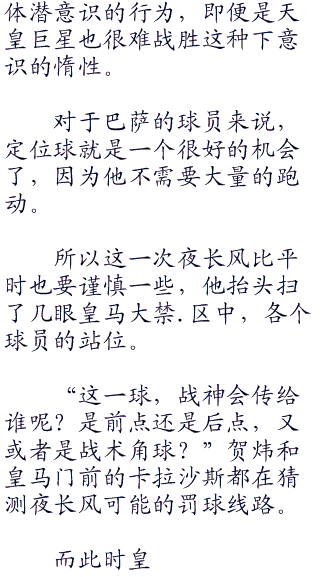 体潜意识的行为，即便是天
皇巨星也很难战胜这种下意
识的惰性。
对于巴萨的球员来说，
定位球就是一个很好的机会
了，因为他不需要大量的跑
动。
所以这一次夜长风比平
时也要谨慎一些，他抬头扫
了几眼皇马大禁.区中，各个
球员的站位。
“这一球，战神会传给
谁呢？是前点还是后点，又
或者是战术角球？”贺炜和
皇马门前的卡拉沙斯都在猜
测夜长风可能的罚球线路。
而此时皇